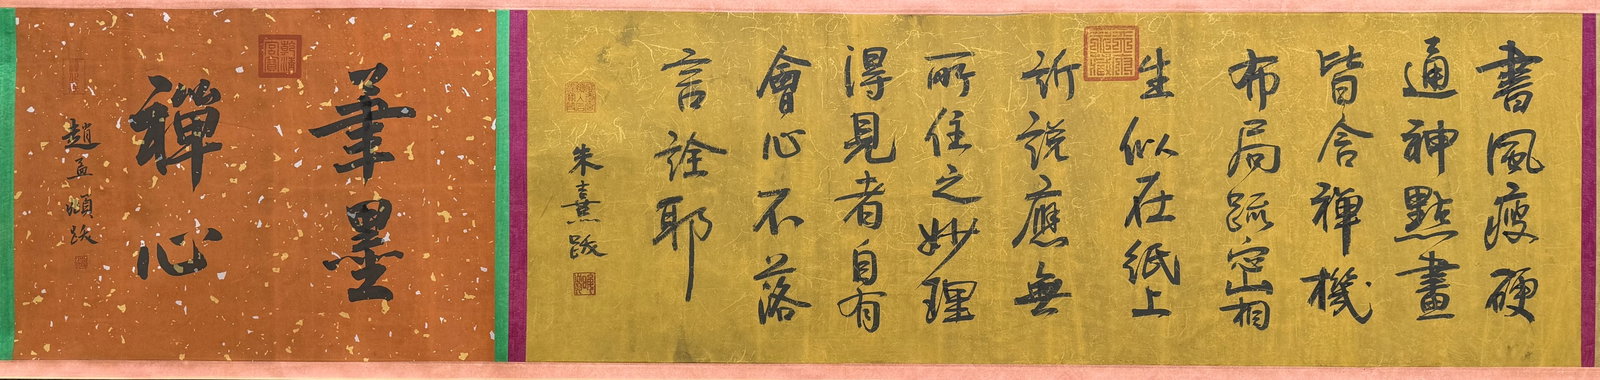 書風瘦硬
通神點畫
皆含禪機
布局疏密相
生似在紙上
訴說應無
所住之妙理
得見者自有
會心不落
言詮耶
朱熹跋
筆墨
禪心
趙孟頫跋